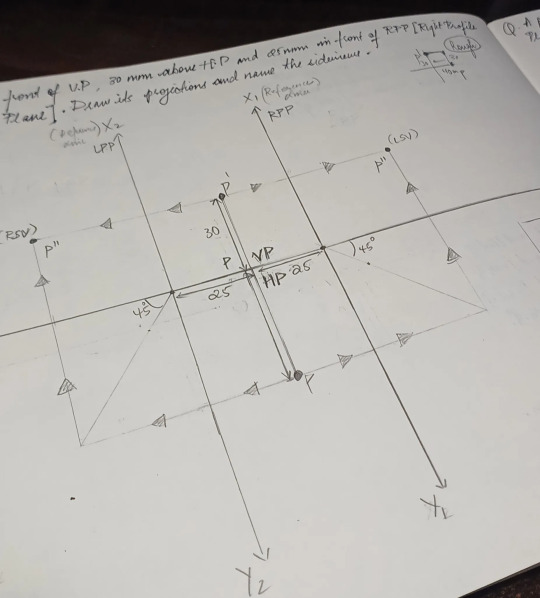 front of V.P, 30 mm above H.P and 25 mm in front of RPP [Right Profile
Plane]. Draw its projections and name the sideview.
Q. A P
(Rough)
30
40mm
(Reference axis) X2
LPP
X1 (Reference axis)
RPP
(LSV)
P''
(RSV)
P''
P'
30
P
VP
HP
25
25
45°
45°
P
Y1
Y2